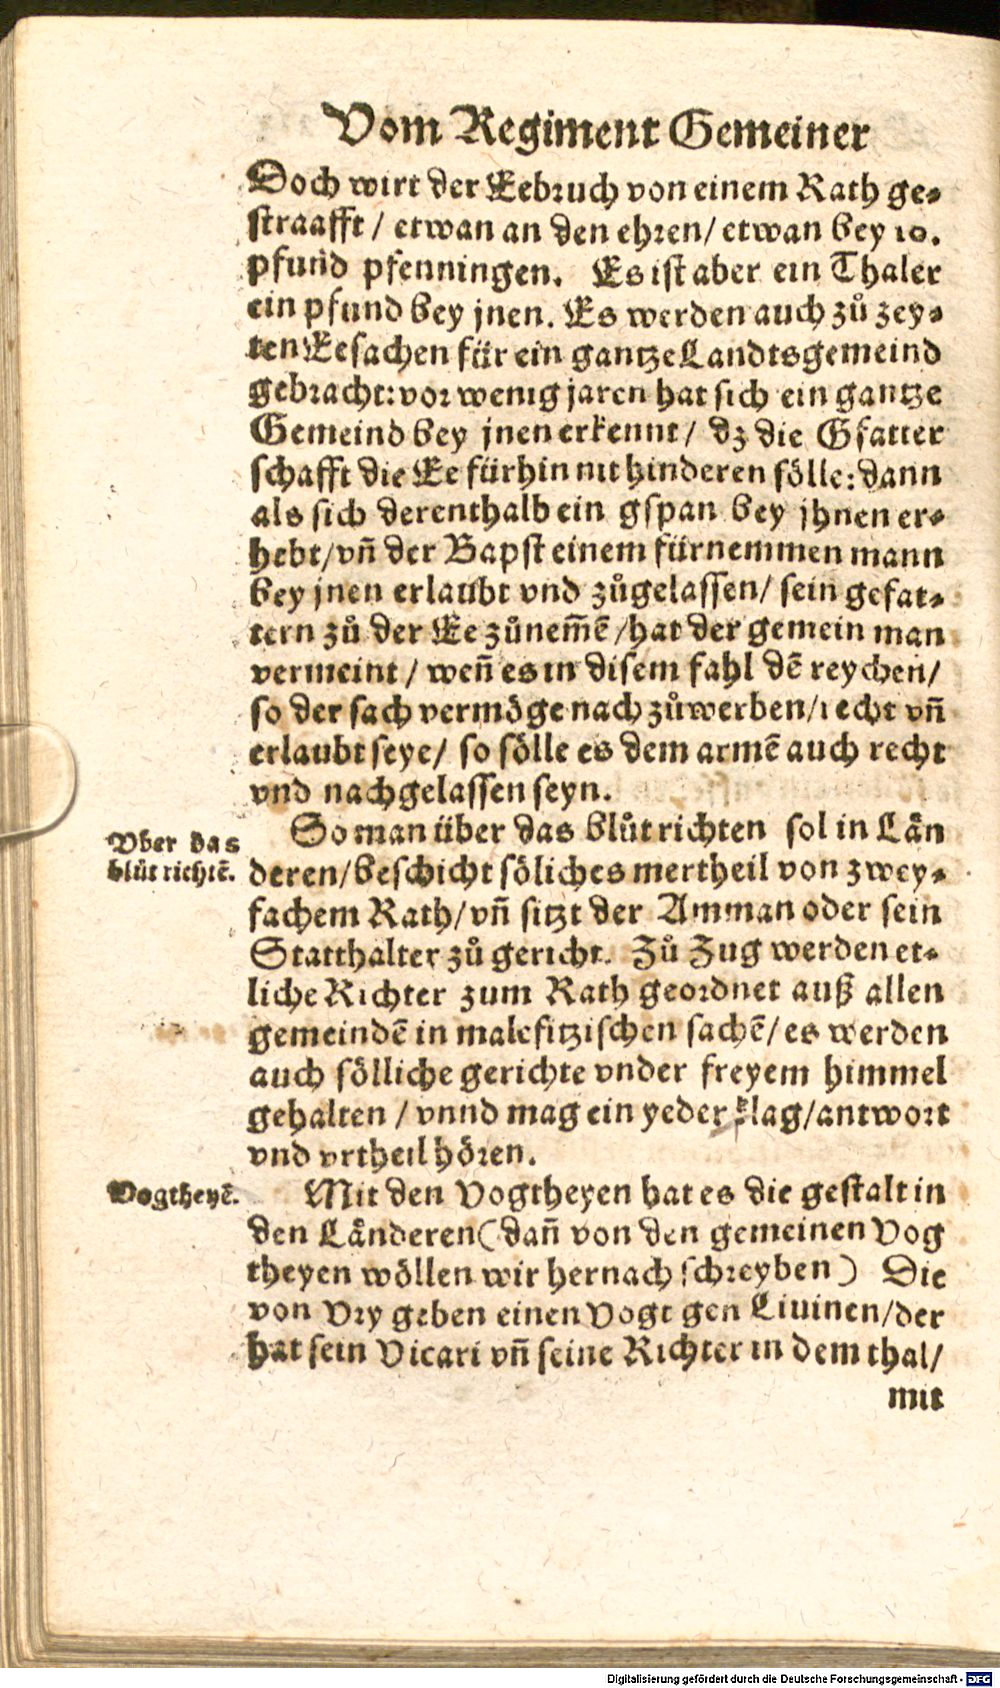 Vom Regiment Gemeiner
Doch wirt der Eebruch von einem Rath ge-
straafft / etwan an den ehren/ etwan bey 10.
pfund pfenningen. Es ist aber ein Thaler
ein pfund bey jnen. Es werden auch zů zey-
ten Eesachen für ein gantze Landtsgemeind
gebracht: vor wenig jaren hat sich ein gantze
Gemeind bey jnen erkennt / dz die Gfatter
schafft die Ee fürhin nit hinderen sölle: dann
als sich derenthalb ein gspan bey jhnen er-
hebt/ vn̄ der Bapst einem fürnemmen mann
bey jnen erlaubt vnd zůgelassen/ sein gefat-
tern zů der Ee zůnem̄ē /hat der gemein man
vermeint / wen̄ es in disem fahl dē reychen/
so der sach vermöge nach zůwerben/recht vn̄
erlaubt seye/ so sölle es dem armē auch recht
vnd nachgelassen seyn.
Vber das
blůt richtē.
So man über das blůt richten sol in Län
deren/ beschicht söliches mertheil von zwey-
fachem Rath/ vn̄ sitzt der Amman oder sein
Statthalter zů gericht. Zů Zug werden et-
liche Richter zum Rath geordnet auß allen
gemeindē in malefitzischen sachē/ es werden
auch sölliche gerichte vnder freyem himmel
gehalten / vnnd mag ein yeder klag/antwort
vnd vrtheil hören.
Vogtheyē.
Mit den Vogtheyen hat es die gestalt in
den Länderen (dan̄ von den gemeinen Vog
theyen wöllen wir hernach schreyben) Die
von Vry geben einen Vogt gen Liuinen/der
hat sein Vicari vn̄ seine Richter in dem thal/
mit
Digitalisierung gefördert durch die Deutsche Forschungsgemeinschaft - DFG